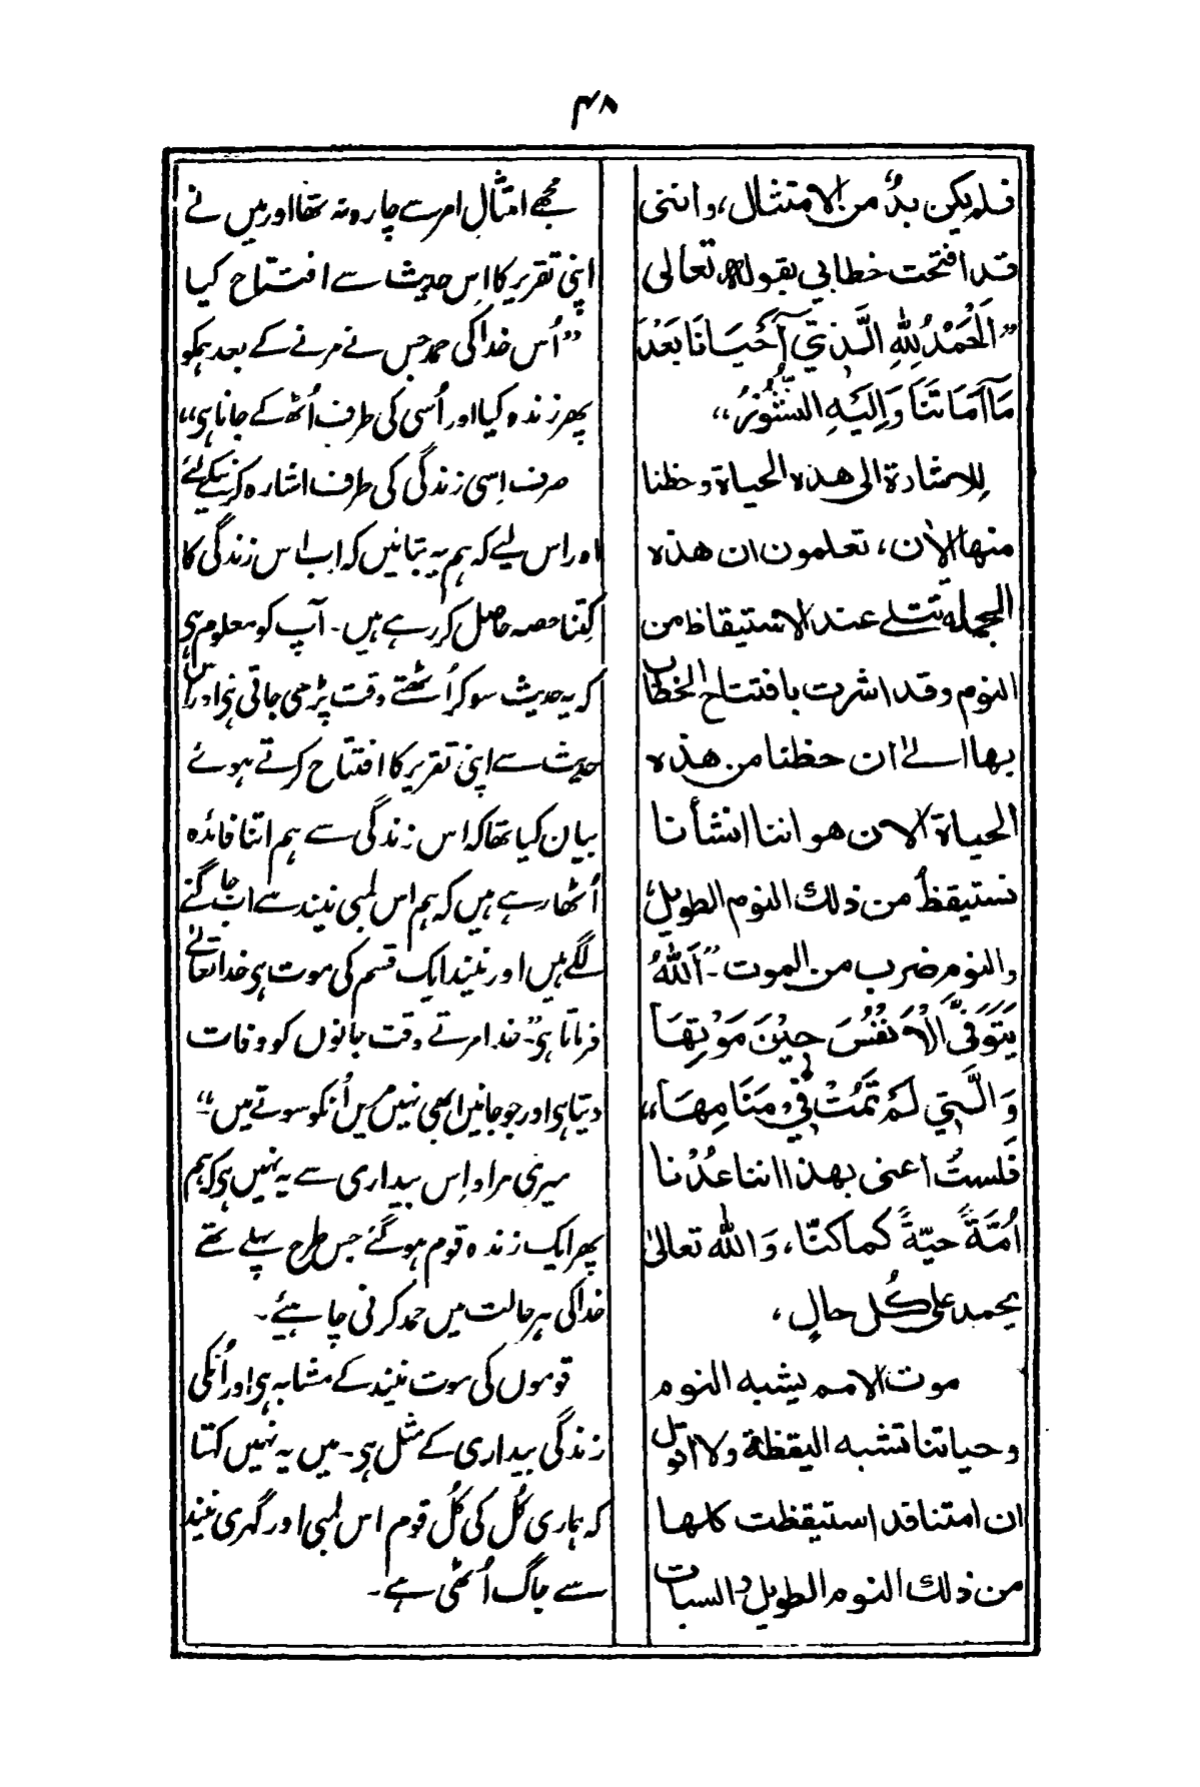 ۴۸
فلم يكن بدٌّ من الامتثال، وانني
قد افتحت خطابي بقوله تعالى
”اَلْحَمْدُ لِلّٰهِ الَّذِيْ اَحْيَانَا بَعْدَ
مَآ اَمَاتَنَا وَاِلَيْهِ النُّشُوْرُ“
للاشارة الى هذه الحياة وحظنا
منها الآن، تعلمون ان هذه
الجملة تتلے عند الاستيقاظ من
النوم وقد اشرت بافتتاح الخطاب
بها الے ان حظنا من هذه
الحياة الآن هو اننا انشأنا
نستيقظ من ذلك النوم الطويل،
والنوم ضرب من الموت۔ ”اَللّٰهُ
يَتَوَفَّى الْاَنْفُسَ حِيْنَ مَوْتِهَا
وَالَّتِي لَمْ تَمُتْ فِيْ مَنَامِهَا“
فَلستُ اعنى بهذا اننا عُدْنا
اُمَّةً حيّةً كما كنّا، وَاللّٰه تعالىٰ
يحمد على كُل حالٍ،
موت الامم يشبه النوم
وحياتنا تشبه اليقظة ولا اقول
ان امتنا قد استيقظت كلها
من ذلك النوم الطويل والسبات
مجھے امتثال امر سے چارہ نہ تھا اور میں نے
اپنی تقریر کا اِس حدیث سے افتتاح کیا
”اُس خدا کی حمد جس نے مرنے کے بعد ہمکو
پھر زندہ کیا اور اُسی کی طرف اُٹھ کے جانا ہی“
صرف اِسی زندگی کی طرف اشارہ کرنیکے لئے
اور اس لیے کہ ہم یہ بتائیں کہ اب اس زندگی کا
کِتنا حصہ حاصل کر رہے ہیں۔ آپ کو معلوم ہی
کہ یہ حدیث سو کر اُٹھتے وقت پڑھی جاتی ہی اور اس
حدیث سے اپنی تقریر کا افتتاح کرتے ہوئے
بیان کیا تھا کہ اس زندگی سے ہم اتنا فائدہ
اُٹھا رہے ہیں کہ ہم اس لمبی نیند سے اب جاگنے
لگے ہیں اور نیند ایک قسم کی موت ہی خدا تعالےٰ
فرماتا ہی ”خدا مرتے وقت جانوں کو وفات
دیتا ہی اور جو جانیں ابھی نہیں مریں اُنکو سوتے میں“
میری مراد اِس بیداری سے یہ نہیں ہی کہ ہم
پھر ایک زندہ قوم ہو گئے جس طرح پہلے تھے
خدا کی ہر حالت میں حمد کرنی چاہیئے۔
قوموں کی موت نیند کے مشابہ ہی اور اُنکی
زندگی بیداری کے مثل ہی۔ میں یہ نہیں کہتا
کہ ہماری کُل کی کُل قوم اس لمبی اور گہری نیند
سے جاگ اُٹھی ہے۔